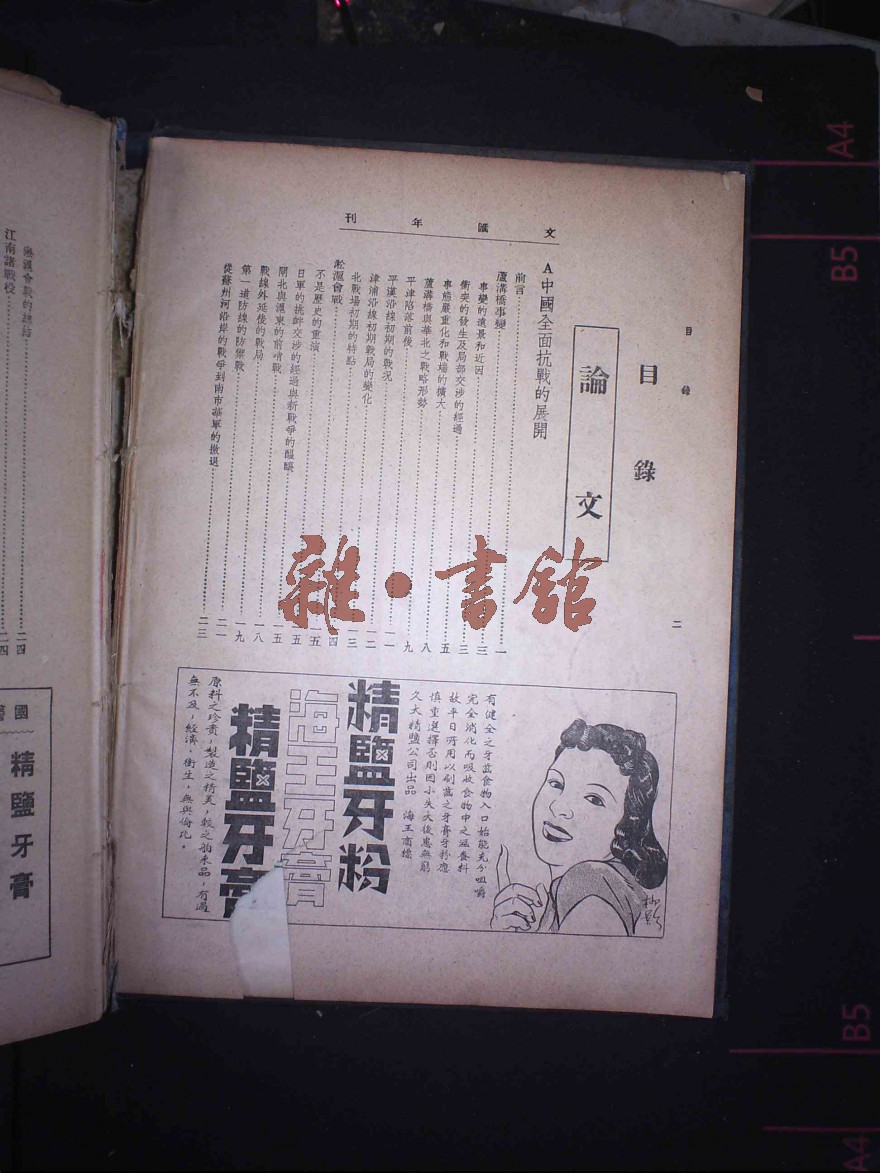 文匯年刊
目錄
二
目錄
論文
A中國全面抗戰的展開
前言 一
蘆溝橋事變 三
事變的遠景和近因 三
衝突的發生及局部交涉的經過 五
事態嚴重化和戰端的擴大 八
蘆溝橋與華北之戰略形勢 九
平津陷落前後 一一
平漢沿線初期的戰況 一二
津浦沿線初期戰局的變化 一三
北戰場初期的特點 一四
淞滬會戰 一五
不是歷史的重演 一五
日軍的挑衅交涉的經過與新戰爭的醞釀 一五
閘北與滬東的前哨戰 一八
戰線外延後的戰局 一九
第一道防線的防禦戰 二一
從蘇州河沿岸的戰爭到南市華軍的撤退 二三
雜·書館
有健全之牙齒食物入口始能充分咀嚼
完全消化而吸收食物中之滋養料
故平日所用以刷齒之牙膏牙粉應
慎重選擇否則因小失大後患無窮
久大精鹽公司出品 海王商標
精鹽牙粉
海王牙膏
精鹽牙膏
原料之珍貴，製造之精美，較之舶來品，有過
無不及，經濟，衛生，無與倫比。
淞滬會戰的總結 二四
江南諸戰役 二四
國
精鹽牙膏
A4
B5
B5
A4